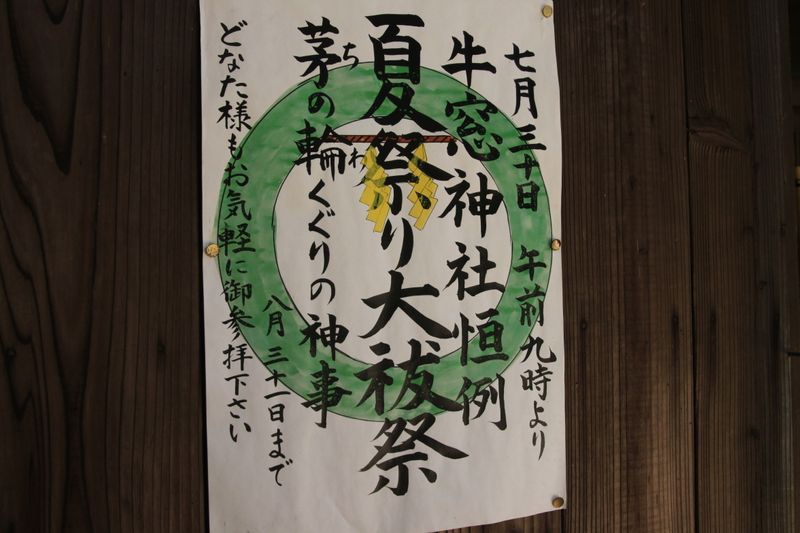 七月三十日 午前九時より
牛窓神社恒例
夏祭り大祓祭
茅の輪くぐりの神事
ち
わ
八月三十一日まで
どなた様もお気軽に御参拝下さい